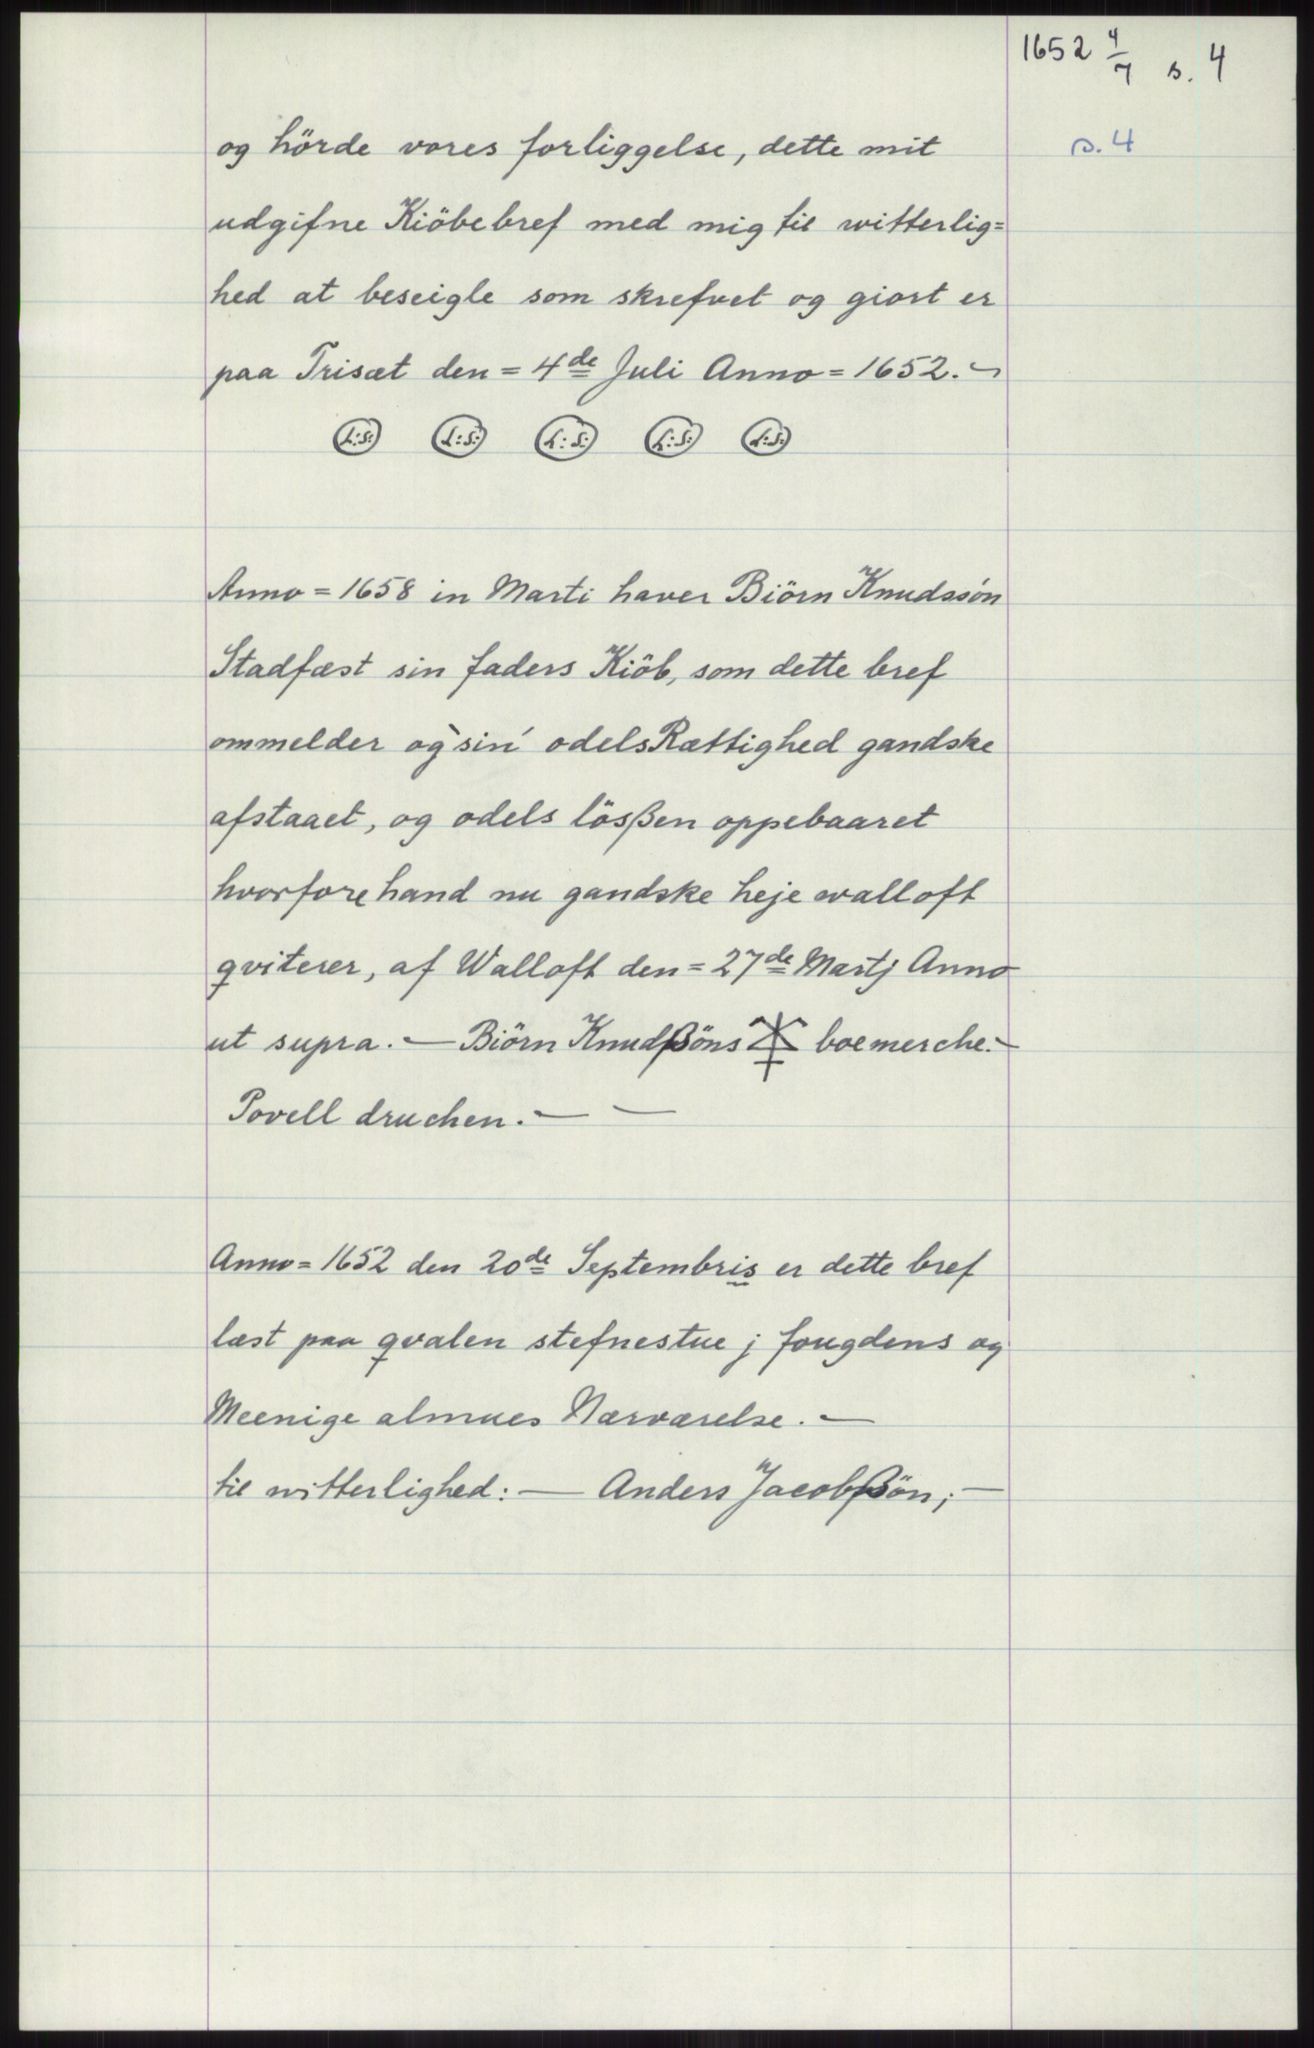 1652 4/7 s. 4
s. 4
og hörde vores forliggelse, dette mit
udgifne Kiöbebref med mig til witterlig=
hed at beseigle som skrefvet og giort er
paa Trisæt den = 4de Juli Anno = 1652.
L:S: L:S: L:S: L:S: L:S:
Anno = 1658 in Marti haver Biörn Knudssön
Stadfæst sin faders Kiöb, som dette bref
ommelder og sin odelsRættighed gandske
afstaaet, og odels lösßen oppebaaret
hvorfore hand nu gandske heje walloft
qviterer, af Walloft den = 27de Martj Anno
ut supra. — Biörn Knudßöns boemerche. —
Povell druchen. — —
Anno = 1652 den 20de Septembris er dette bref
læst paa qvalen stefnestue j fougdens og
Meenige almues Nærværelse. —
til witterlighed: — Anders Jacobßön; —